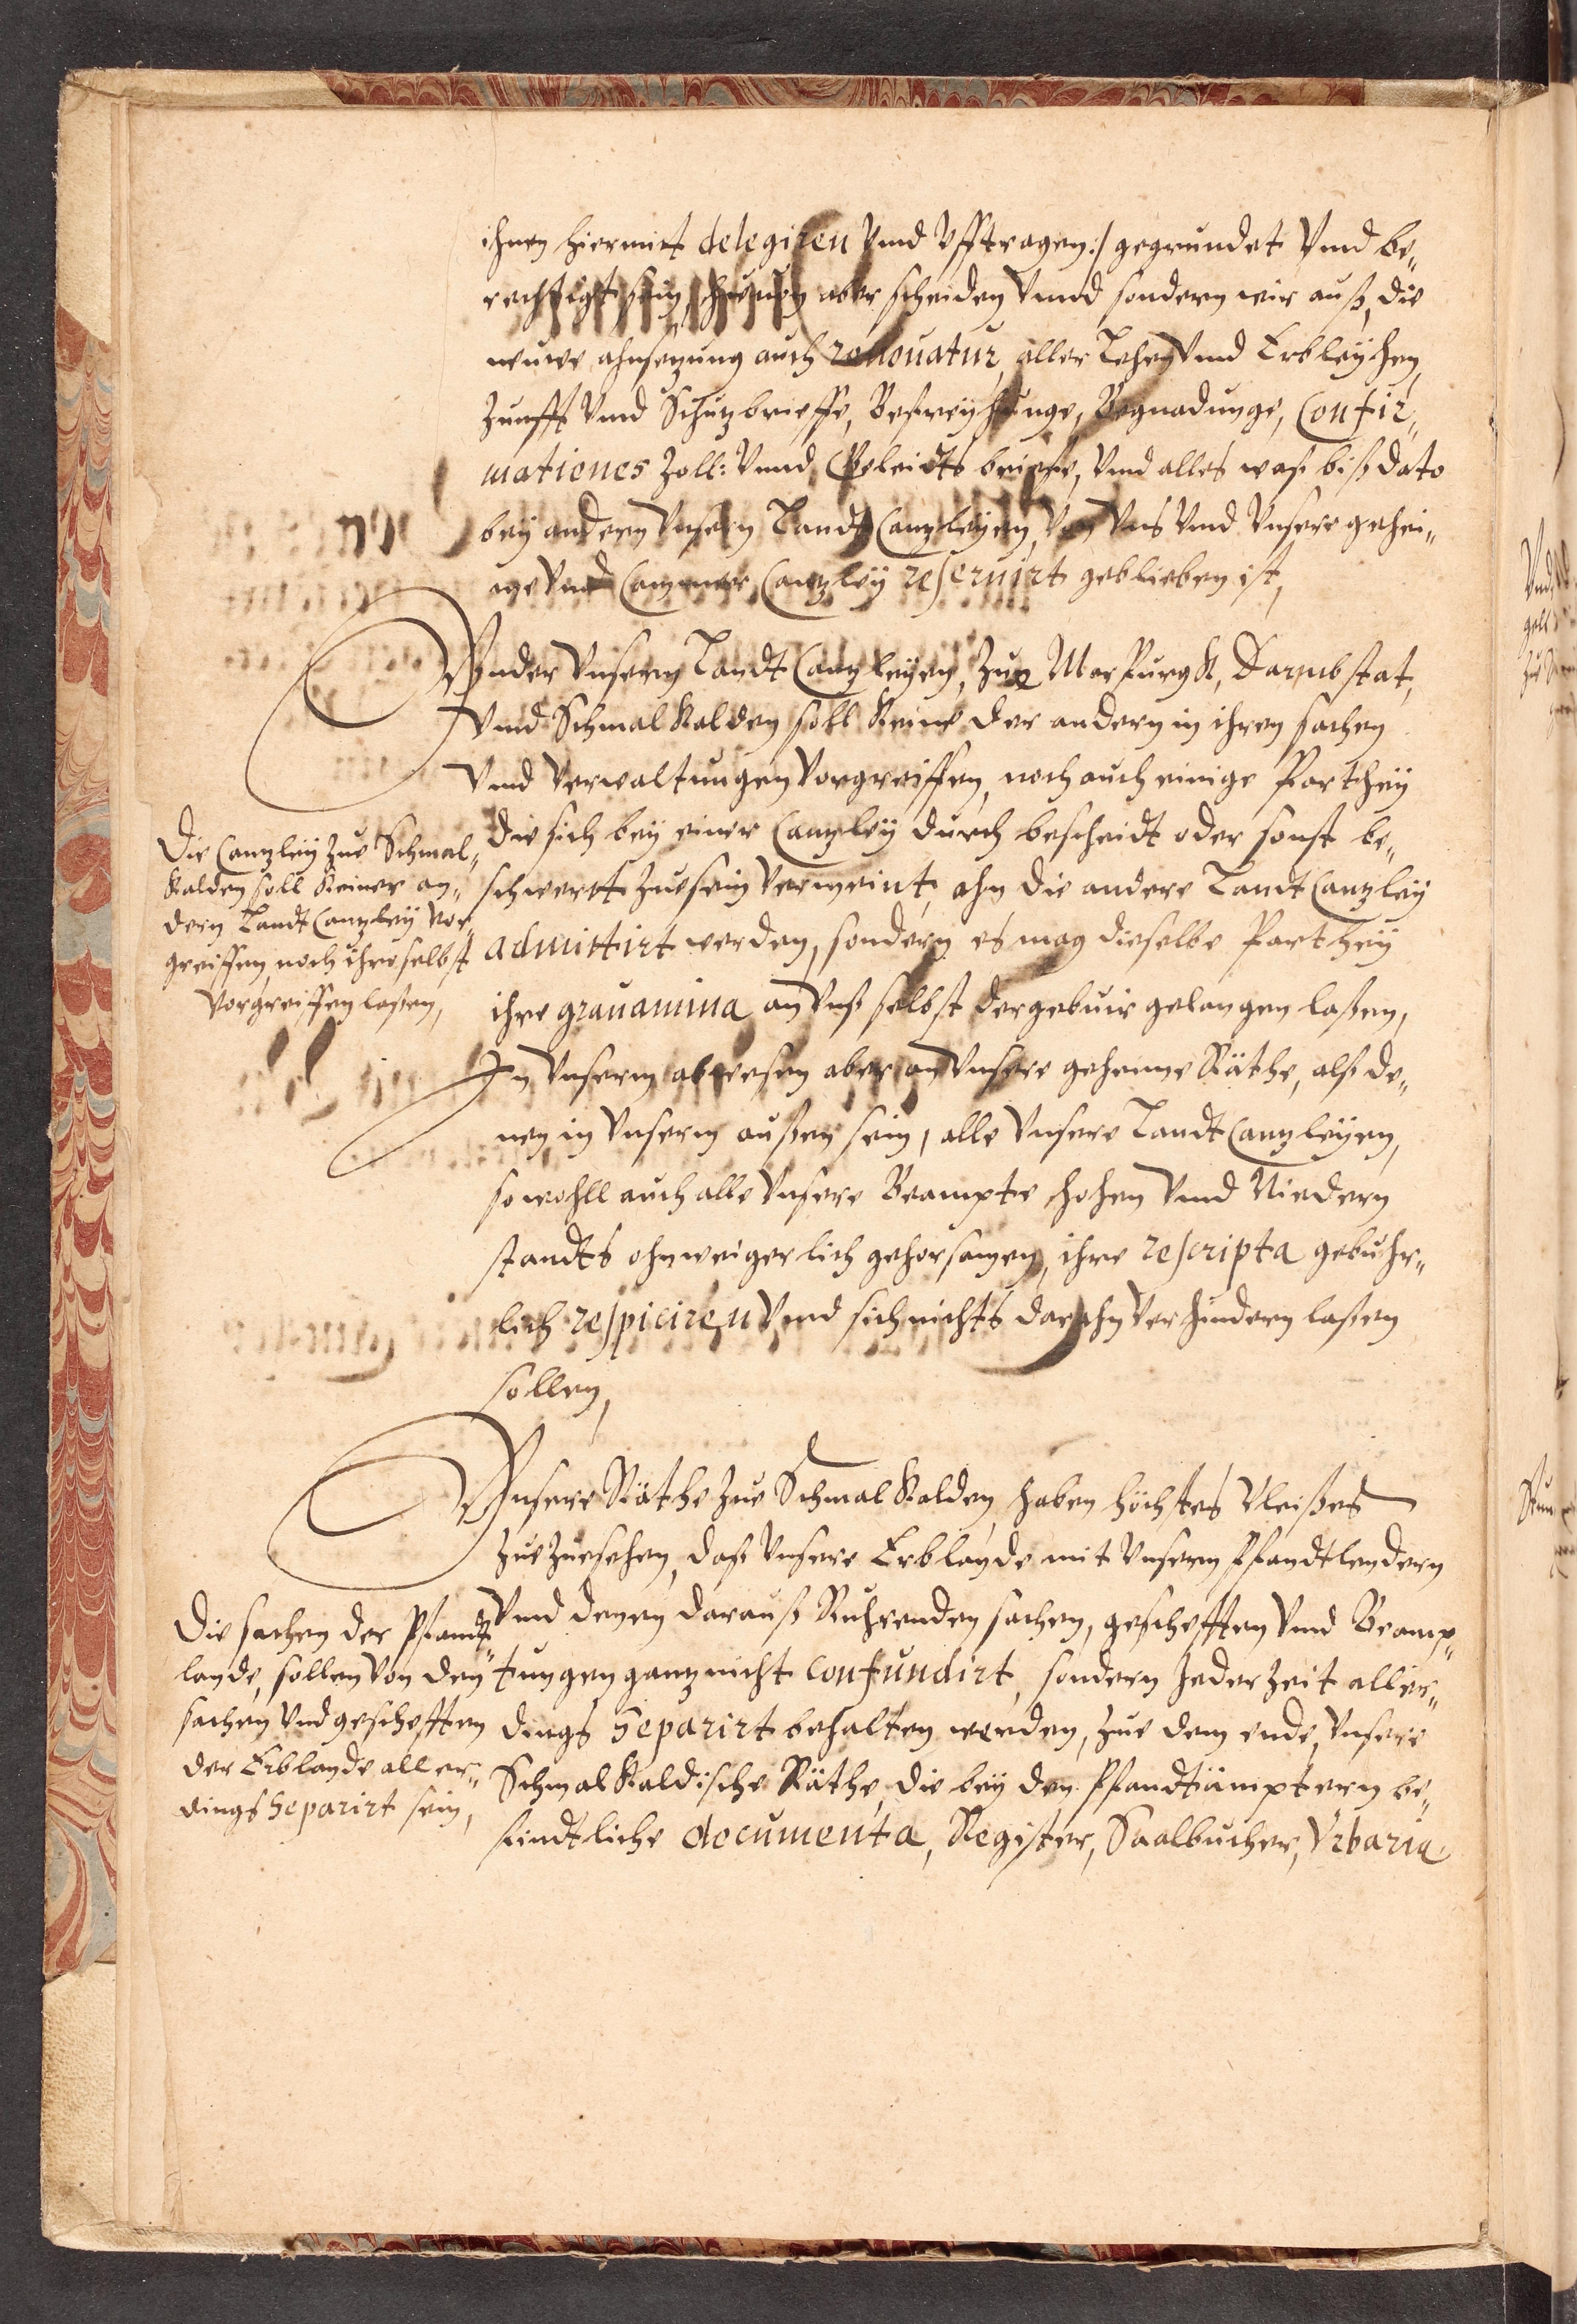 ihnen hiermit delegiren Vnnd Vfftragen:/ gegrundet Vnnd be„
rechtigt sein, hierinn aber scheiden Vnnd sondern wir auß, die
neuwe ahnsetzung auch renouatur aller Lehen Vnnd Erbleyhen,
Zunfft Vnnd Schutzbrieffe, Befreyhunge, Begnadunge, Confir„
mationes Zoll: Vnnd Geleidts brieffe, Vnnd alles waß biß dato
bey andern Vnsern Landt Cantzleyen, Von Vns Vnnd Vnsere gehei„
me Vnd Cammer Cantzley reseruirt geblieben ist,
Vnder Vnsern Landt Cantzleyen, Zue Marpurgk, Darmbstat,
Vnnd Schmalkalden soll keine der andern in ihren sachen
Vnnd Verwaltungen Vorgreiffen, noch auch einige Parthey
die sich bey einer Cantzley durch bescheidt oder sonst be„
schwert zue sein Vermeint, ahn die andere Landt Cantzley
admittirt werden, sondern es mag dieselbe Parthey
ihre grauamina an Vnß selbst der gebuir gelangen laßen,
In Vnserm abwesen aber an Vnsere geheime Räthe, alß de„
nen in Vnserm außen sein, alle Vnsere Landt Cantzleyen,
sowohll auch alle Vnsere Beampte hohen Vnnd Niedern
standts ohnweigerlich gehorsamen, ihre rescripta gebuhr„
lich respiciren Vnnd sich nichts darahn Verhindern laßen
sollen,
Die Cantzley Zue Schmal„
kalden soll keiner an„
dern Landt Cantzley Vor„
greiffen, noch ihro selbst
Vorgreiffen laßen,
Vnsere Räthe Zue Schmalkalden haben höchstes Vleißes
Zue Zuesehen, daß Vnsere Erblande mit Vnsern Pfandtlendern
Vnnd denen darauß Ruhrenden sachen, geschefften Vnnd Beamp„
tungen gantz nicht confundirt, sondern Jeder Zeit aller„
dings Separirt behalten werden, Zue dem ende, Vnsere
Schmalkaldische Räthe, die bey den Pfandtämptern be„
findtliche documenta, Register, Saalbucher, Vrbaria
Die sachen der Pfandt„
lande, sollen Von den
sachen Vnd geschefften
der Erblande aller„
dings Separirt sein,